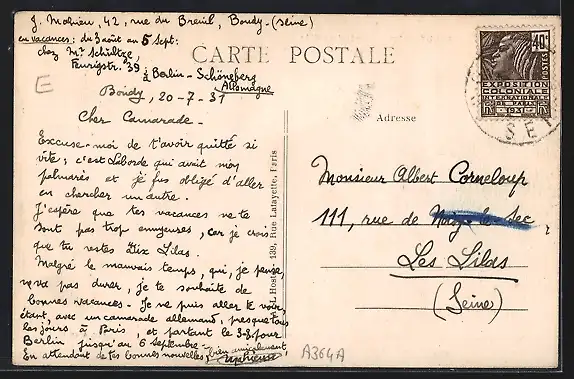 J. Mahieu, 42, rue du Breuil, Bondy-(Seine)
en vacances: du 3 août au 5 sept:
chez Mr. Schultze,
Feurigstr. 39
à Berlin - Schöneberg
Allemagne
CARTE POSTALE
E
Bondy, 20-7-31
Cher Camarade -
Excuse-moi de t'avoir quitté si
vite; c'est Laborde qui avait mon
palmarès et je fus obligé d'aller
en chercher un autre.
J'espère que tes vacances ne te
sont pas trop ennuyeuses, car je crois
que tu restes aux Lilas.
Malgré le mauvais temps, qui, je pense,
ne va pas durer, je te souhaite de
bonnes vacances - Je ne puis aller te voir,
étant, avec un camarade allemand, presque tous
les jours à Paris, et partant le 3-8 pour
Berlin jusqu'au 6 septembre -
En attendant de tes bonnes nouvelles, bien amicalement,
139, Rue Lafayette, Paris
40c
POSTES
EXPOSITION
COLONIALE
INTERNATIONALE
DE PARIS
1931
SE
Adresse
Monsieur Albert Corneloup
111, rue de Noisy-le-Sec
Les Lilas
(Seine)
A364A